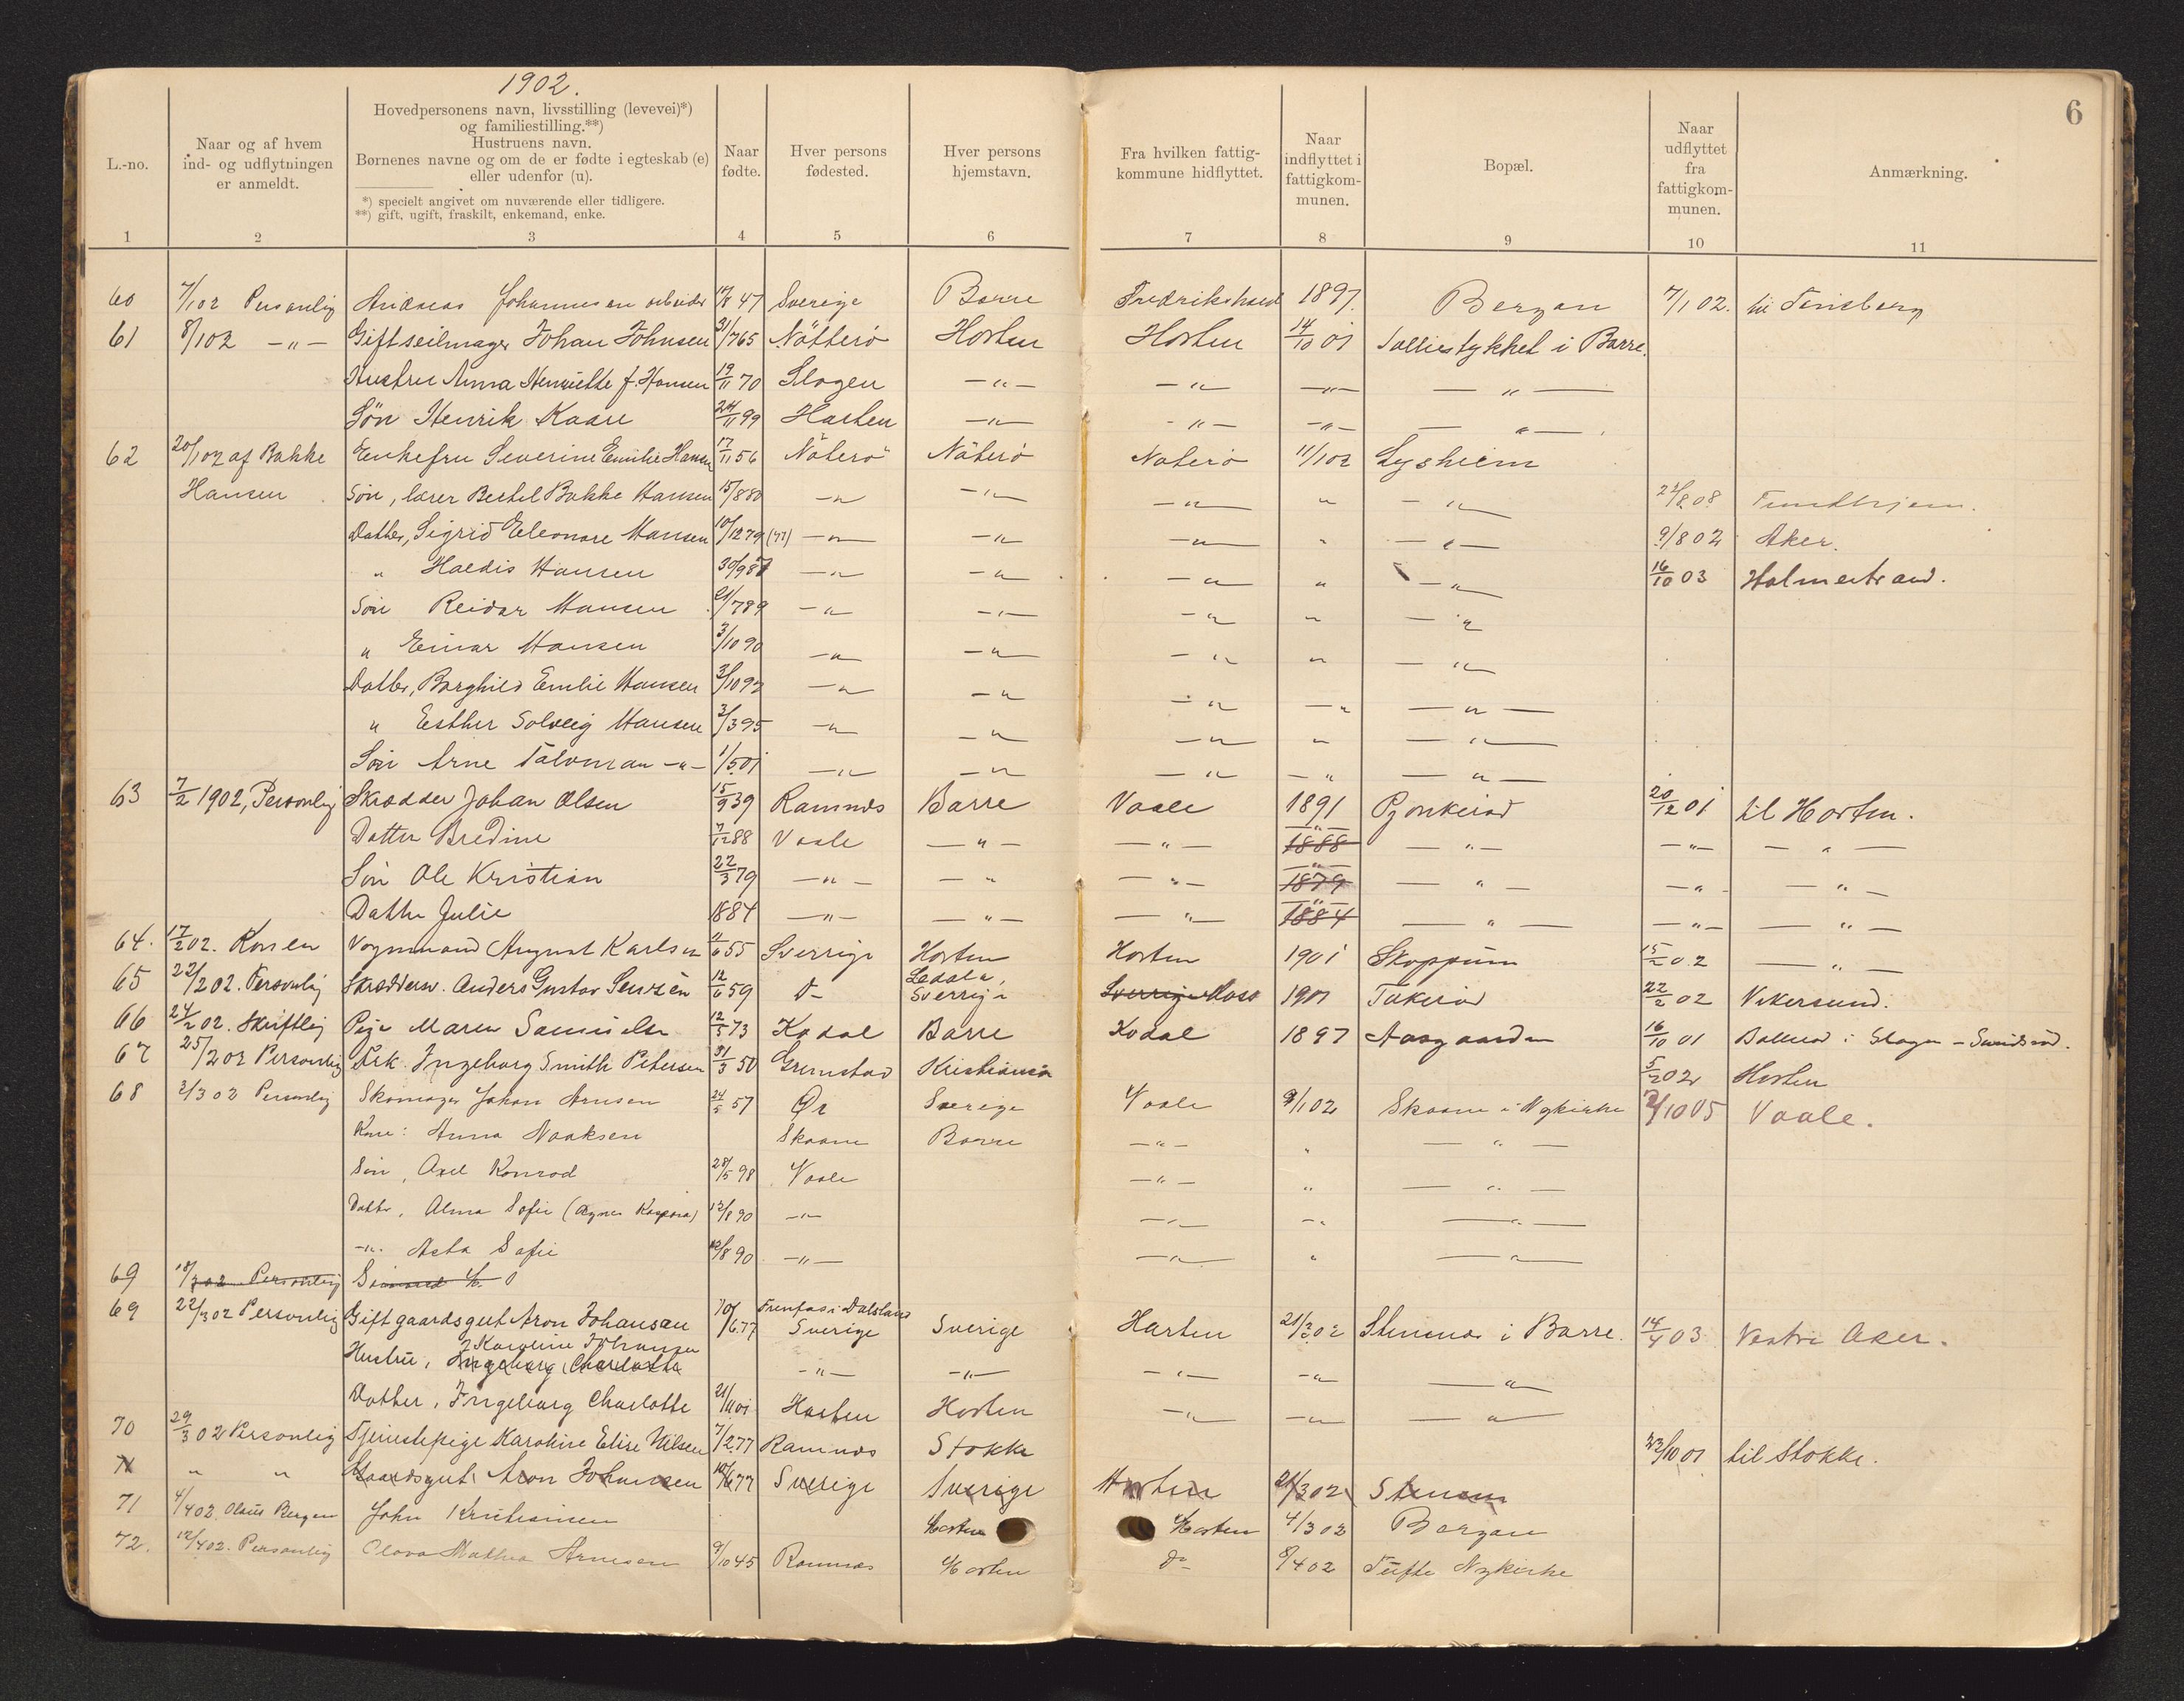 1902.
6
L.-no.
Naar og af hvem ind- og udflytningen er anmeldt.
Hovedpersonens navn, livsstilling (levevei)*) og familiestilling.**)
Hustruens navn.
Børnenes navne og om de er fødte i egteskab (e) eller udenfor (u).
*) specielt angivet om nuværende eller tidligere.
**) gift, ugift, fraskilt, enkemand, enke.
Naar fødte.
Hver persons fødested.
Hver persons hjemstavn.
Fra hvilken fattigkommune hidflyttet.
Naar indflyttet i fattigkommunen.
Bopæl.
Naar udflyttet fra fattigkommunen.
Anmærkning.
1 2 3 4 5 6 7 8 9 10 11
60 7/1 02 Personlig Andreas Johannesen arbeider 47 Sverige Borre Fredrikshald 1897. Bergan 7/1 02. til Tønsberg
61 8/1 02 -"- Gift seilmager Johan Johnsen 31/7 65 Nötterö Horten Horten 14/10 01 i Borre.
Hustru Anna Henriette f. Hansen 19/11 70 Slagen -"- -"- -"- -"-
Sön Henrik Kaare 24/11 99 Horten -"- -"- -"- -"-
62 20/1 02 af Bakke Enkefru Severine Emilie Hansen 17/11 56 Nöterö Nöterö Nöterö 11/1 02 Lysheim
Hansen Sön, lærer Bertel Bakke Hansen 15/8 80 -"- -"- -"- " -"- 21/8 08
Datter, Sigrid Eleonore Hansen 10/12 79 (77) -"- -"- -"- " -"- 9/8 02 Aker.
" Haldis Hansen 30/9 87 -"- -"- -"- " -"- 16/10 03 Holmestrand.
Sön Reidar Hansen 21/7 89 -"- -"- -"- " -"-
" Einar Hansen 3/10 90 -"- -"- -"- " -"-
Datter, Borghild Emilie Hansen 3/10 92 -"- -"- -"- -" -"-
" Esther Solveig Hansen 3/3 95 -"- -"- -"- " -"-
Sön Arne -"- 1/5 01 -"- -"- -"- -" -"-
63 7/2 1902, Personlig Skrædder Johan Olsen 15/9 39 Ramnes Borre Vaale 1891 20/12 01 til Horten.
Datter Bredine 7/12 88 Vaale -"- -"- -"- 1888 -"- -"- -"-
Sön Ole Kristian 22/3 79 -"- -"- -"- -"- 1879 -"- -"- -"-
Datter Julie 1884 -"- -"- -"- -"- 1884 -"- -"- -"-
64. 17/2 02. Vognmand August Karlsen 55 Sverrige Horten Horten 1901 Skoppum 15/2 02 -"-
65 22/2 02. Personlig Skræddersv. Anders Gustav 12/6 59 Do Sverrige Sverrige Moss 1901 Takerød 22/2 02 Vikersund.
66 24/2 02. Skriftlig Pige Maren Samuelsen 12/5 73 Kodal Borre Kodal 1897 Aasgaarden 16/10 01 i Slagen
67 25/2 02 Personlig Frk. Ingeborg Smith Petersen 31/3 50 Grimstad Kristiania 5/2 02 Horten
68 2/3 02 Personlig Skomager Johan Arnesen 24/5 57 Ør Sverige Vaale 9/1 02 Skaane i Nykirke 2/10 05 Vaale.
Kone: Anna Skaane Borre -"- " -"-
Sön, Axel Konrad 28/5 98 Vaale -"- " -"-
Datter, Alma Sofie 12/8 90 -"- -"- -" -"-
-"- Asta Sofie 12/8 90 -"- -"- " -"-
69 18/3 02 Personlig
69 22/3 02 Personlig Gift gaardsgut Aron Johansen 10/6 77 Dalsland Sverige Sverige Horten 21/3 02 Stensnes i Borre. 14/4 03 Vestre Aker.
Hustru, Karoline Johansen Ingeborg Charlotte -"- -"- -"- -"- -"-
Datter, Ingeborg Charlotte 21/11 01 Horten Horten -"- -"- -"-
70 29/3 02 Personlig Tjenestepige Karoline Elise Nilsen 7/2 77 Ramnes Stokke 01 til Stokke.
71 " " Gaardsgut Aron Johansen 10/6 77 Sverige Sverige Horten 21/3 02
71 4/4 02. Olaus Bergan John Kristiansen Horten Horten 4/3 02 Bergan
72. 12/4 02. Personlig Olava Mathea Arnesen 9/10 45 Ramnes Horten do 8/4 02 Tufte Nykirke